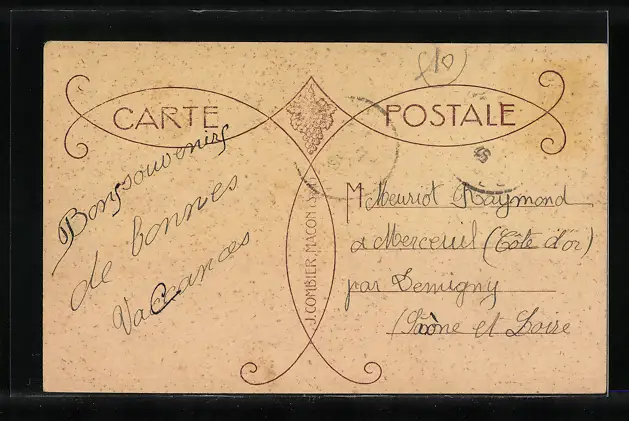 CARTE POSTALE
Bons souvenirs
de bonnes
Vaccances
J. COMBIER, MACON (S.-L.)
M Meuriot Raymond
a Merceuil (Côte d'or)
par Demigny
(Saône et Loire
10